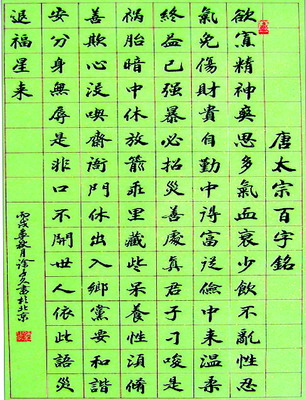 唐太宗百字銘
欲寡精神爽思多氣血衰少飲不亂性忍
氣免傷財貴自勤中得富從儉中來溫柔
終益己强暴必招災善處真君子刁唆是
禍胎暗中休放箭乖里藏些呆養性須脩
善欺心没喫齋衙門休出入鄉黨要和諧
安分身無辱是非口不開世人依此語災
退福星來
丙戌季秋月徐久書於北京